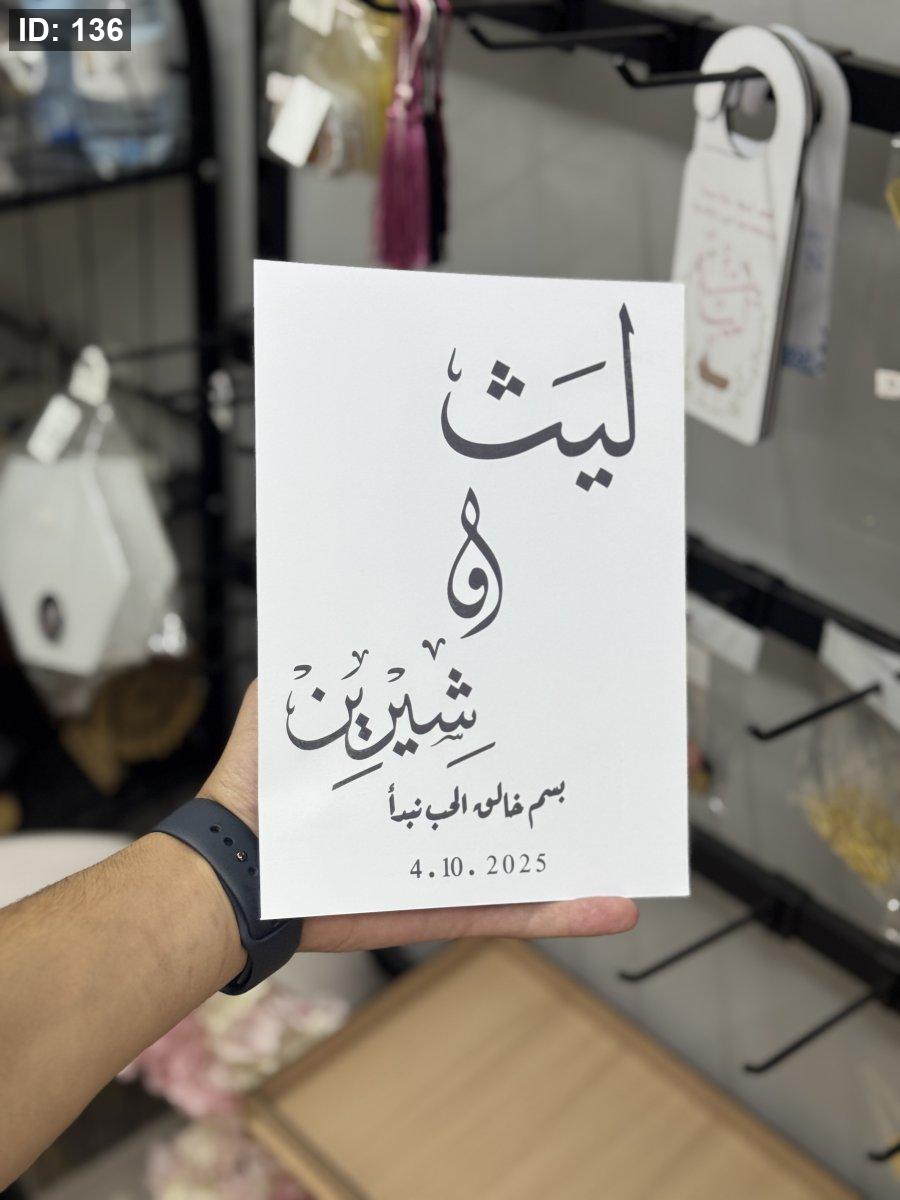 ID: 136
لَيث
و
شِيْرِيِنْ
بسم خالق الحب نبدأ
4.10.2025